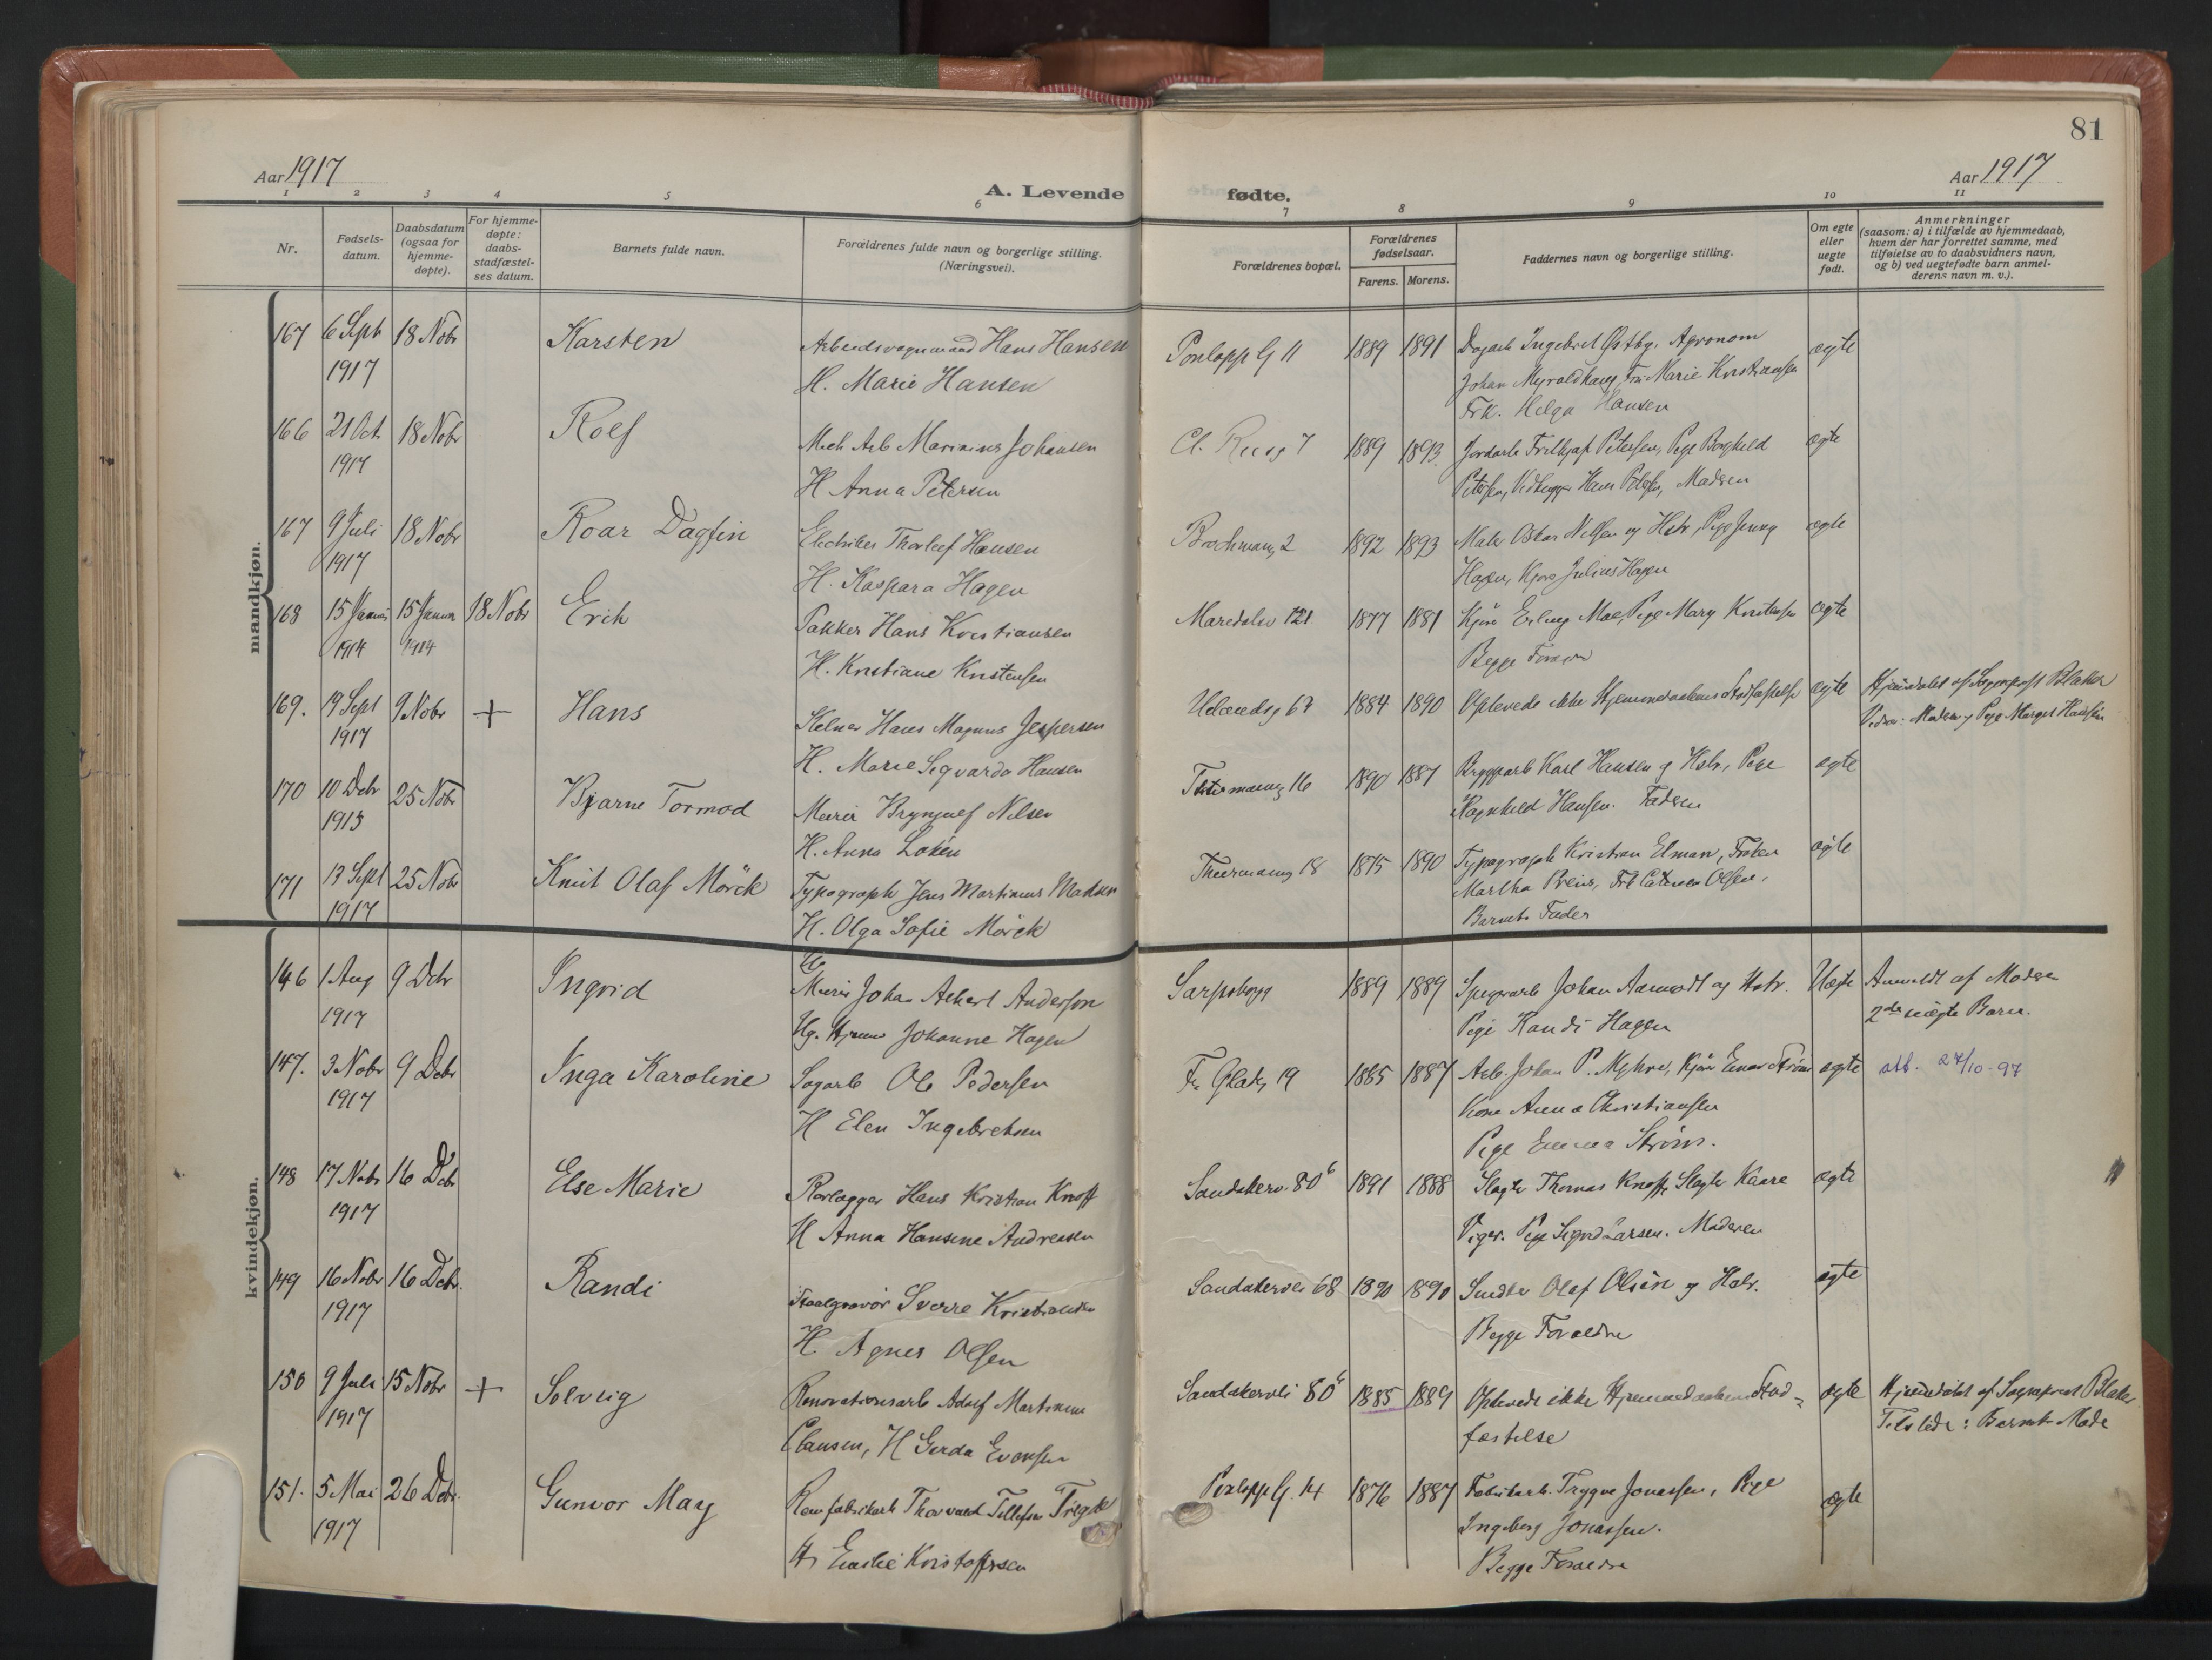 81
Aar 1917
Aar 1917
A. Levende fødte.
1 2 3 4 5 6 7 8 9 10 11
Nr.
Fødsels-
datum.
Daabsdatum
(ogsaa for
hjemme-
døpte).
For hjemme-
døpte:
daabs-
stadfæstel-
ses datum.
Barnets fulde navn.
Forældrenes fulde navn og borgerlige stilling.
(Næringsvei).
Forældrenes bopæl.
Forældrenes
fødselsaar.
Farens. Morens.
Faddernes navn og borgerlige stilling.
Om egte
eller
uegte
født.
Anmerkninger
(saasom: a) i tilfælde av hjemmedaab,
hvem der har forrettet samme, med
tilføielse av to daabsvidners navn,
og b) ved uegtefødte barn anmel-
derens navn m. v.).
mandkjøn.
167 6 Sept 18 Nobr Karsten Arbeidsvognmand Hans Hansen 11 1889 1891 Ingebret Østby, Agronom ægte
1917 H. Marie Hansen Johan Fru Marie Kristiansen
Frk. Helga Hansen
166 21 Oct 18 Nobr Rolf Mek Arb Marinius Johansen 7 1889 1893. Jordarb Petersen, Pige Borghild ægte
1917 H Anna Petersen Petersen, Hans Petersen, Madsen
167 9 Juli 18 Nobr Roar Dagfin Elektriker Thorleif Hansen 2 1892 1893 Maler Oskar Nilsen og Hstr, Pige Jenny ægte
1917 H. Kaspara Hagen Hagen, Kjøre Julius Hagen
168 15 Januar 15 Januar 18 Nobr Erik Pakker Hans Kristiansen Maridalsv 121 1877 1881 Kjøre Erling Moe, Pige Mary Kristensen ægte
1914 1914 H. Kristiane Kristensen Begge Forældre
169. 19 Sept 9 Nobr + Hans Kelner Hans Magnus Jespersen Uelandsg 67 1884 1890 Oplevede ikke Hjemmedaabens Stadfæstelse ægte Hjemdøbt af Sogneprest Blaker
1917 H. Marie Sigvarda Hansen Moderen og Pige Margit Hansen
170 10 Debr 25 Nobr Bjarne Tormod Murer Brynjulf Nilsen 16 1890 1887 Bryggarb Karl Hansen og Hstr, Pige ægte
1913 H. Anna Løken Ragnhild Hansen. Faderen
171 13 Sept 25 Nobr Knut Olaf Mörck Typograph Jens Martinius Madsen Thurmannsg 18 1875 1890 Typograph Kristian Elman, Frøken ægte
1917 H. Olga Sofie Mörck Martha Preus, Frk Olsen,
Barnets Fader
kvindekjøn.
146 1 Aug 9 Debr Ingrid Murer Johan Albert Anderson Sarpsborg 1889 1889 Johan Aamodt og Hstr. Uægte Anmeldt af Moderen
1917 Ug. Johanne Hagen Pige Randi Hagen 2det uægte Barn.
147. 3 Nobr 9 Debr Inga Karoline Sagarb Ole Pedersen Fr Gladsg 19 1885 1887 Arb. Johan P. Myhre, Kjører Einar Strøm ægte att. 27/10-97
1917 H Elen Ingebretsen Kone Anna Christiansen
Pige Emma Strøm.
148 17 Nobr 16 Debr Else Marie Rørlægger Hans Kristian Knoff Sandakerv. 80 6 1891 1888 Slagter Thomas Knoff, Slagter Kaare ægte
1917 H Anna Hansine Andreasen Viger. Pige Sigrid Larsen. Moderen
149 16 Nobr 16 Debr. Randi Staalgravør Sverre Kristiansen Sandakervei 68 1890 1890 Snedker Olaf Olsen og Hstr. ægte
1917 H Agnes Olsen Begge Forældre
150 9 Juli 15 Nobr + Solveig Renovationsarb Adolf Martinius Sandakervei 80 6 1885 1889 Oplevede ikke Hjemmedaabens Stad- ægte Hjemdøbt af Sogneprest Blaker
1917 Clausen, H Gerda Evensen fæstelse Tilstede: Barnets Moder
151. 5 Mai 26 Debr. Gunvor May Thorvald Tellefsen 14 1876 1887 Fabrikarb. Trygve Jonassen, Pige ægte
1917 H Emilie Kristoffersen Ingeborg Jonassen.
Begge Forældre